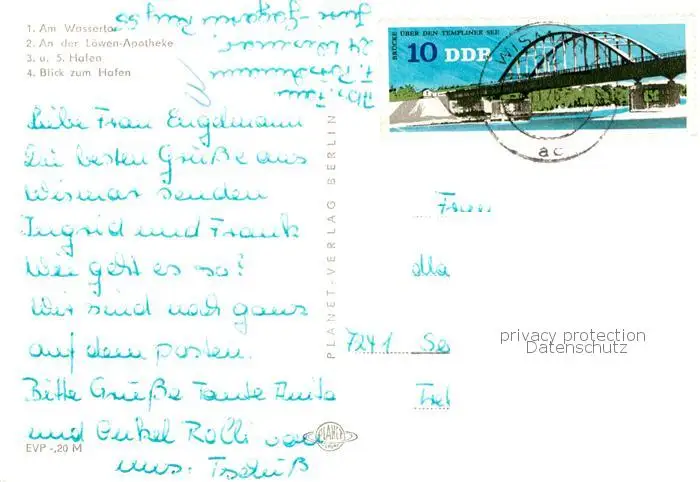 1. Am Wassertor
2. An der Löwen-Apotheke
3. u. 5. Hafen
4. Blick zum Hafen
Liebe Frau Engelmann
Die besten Grüße aus
Wismar senden
Ingrid und Frank
Wie geht es so?
Wir sind noch ganz
auf dem posten.
Bitte Grüße Tante Anita
und Onkel Rolli von
uns. Tschüß
EVP -,20 M
PLANET-VERLAG BERLIN
PLANET
BRÜCKE ÜBER DEN TEMPLINER SEE
10 DDR
WISMAR
ac
Frau
7241 Se
privacy protection
Datenschutz